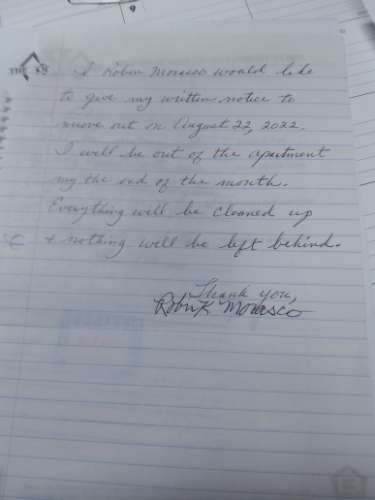 I Robin Morasco would like
to give my written notice to
move out on August 22, 2022.
I will be out of the apartment
my the end of the month.
Everything will be cleaned up
& nothing will be left behind.
Thank you,
Robin K Morasco